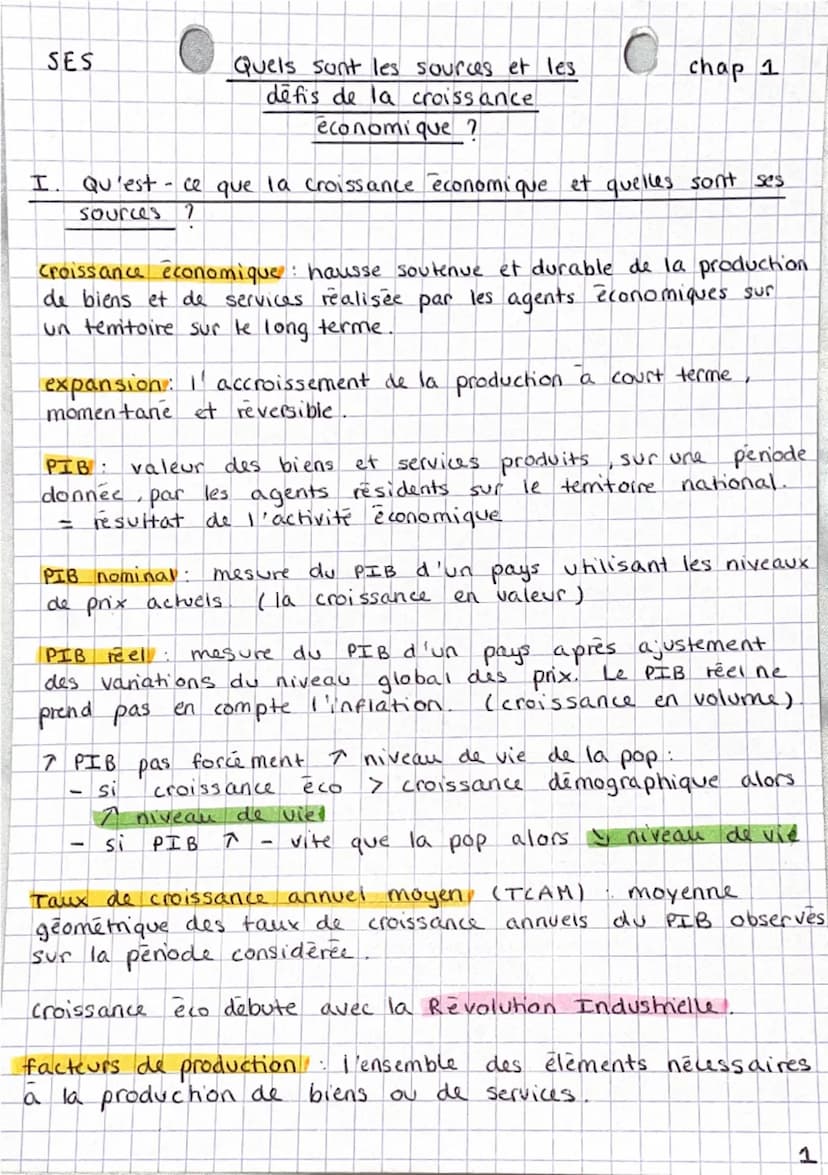 SES
Quels sont les sources et les
défis de la croissance
économique ?
chap 1
I. Qu'est-ce que la croissance économique et quelles sont ses
sources ?
croissance économique : hausse soutenue et durable de la production
de biens et de services réalisée par les agents économiques sur
un territoire sur le long terme.
expansion : l'accroissement de la production à court terme,
momentané et réversible.
PIB : valeur des biens et services produits, sur une période
donnée, par les agents résidents sur le territoire national.
= résultat de l'activité économique
PIB nominal : mesure du PIB d'un pays utilisant les niveaux
de prix actuels. (la croissance en valeur)
PIB réel : mesure du PIB d'un pays après ajustement
des variations du niveau global des prix. Le PIB réel ne
prend pas en compte l'inflation. (croissance en volume).
↗ PIB pas forcément ↗ niveau de vie de la pop :
- si croissance éco > croissance démographique alors
↗ niveau de vie
- si PIB ↗ - vite que la pop alors ↘ niveau de vie
Taux de croissance annuel moyen (TCAM) : moyenne
géométrique des taux de croissance annuels du PIB observés
sur la période considérée.
croissance éco débute avec la Révolution Industrielle.
facteurs de production : l'ensemble des éléments nécessaires
à la production de biens ou de services.
1